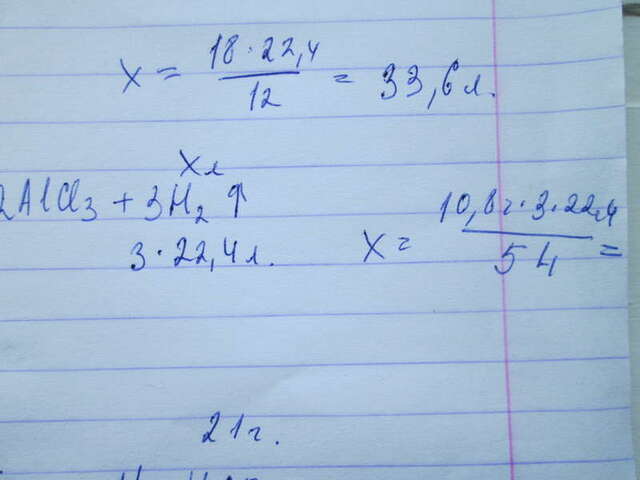 x = 18·22,4/12 = 33,6 л.
x л
2AlCl₃ + 3H₂↑
3·22,4 л.
x = 10,8г·3·22,4/54 =
21г.